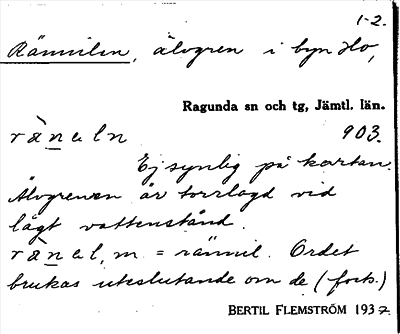 1-2.
Rännilen, älvgren i byn Ho,
Ragunda sn och tg, Jämtl. län.
rànaln 903.
Ej synlig på kartan.
Älvgrenen är torrlagd vid
lågt vattenstånd.
rànal, m = rännil. Ordet
brukas uteslutande om de (forts.)
BERTIL FLEMSTRÖM 1937